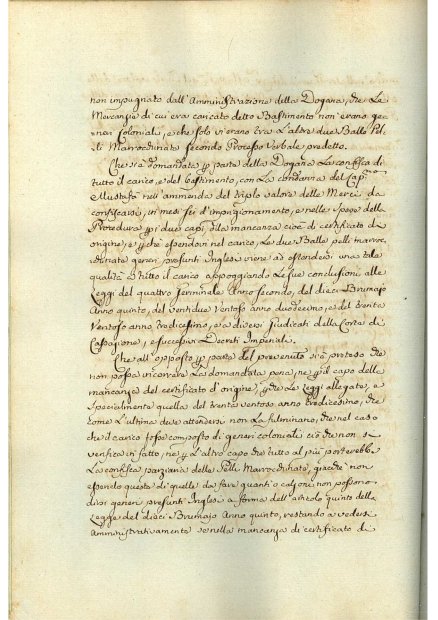 non impugnato dall'Amministrazione della Dogana, che Le
Mercanzie di cui era caricato detto Bastimento non erano ge=
neri Coloniali, e che solo vi erano tra L'altre due Balle Pel=
li Marrochinate secondo Processo Verbale predetto.
Che si è domandata p parte della Dogana La confisca di
tutto il carico, e del bastimento, con La condanna del Cap.no
Mustafà nell'ammenda del triplo valore delle Merci da
confiscarsi, in mesi sei d'imprigionamento, e nelle Spese della
Procedura p i due capi, della mancanza cioè di certificato di
origine, e p che essendovi nel carico, Le due Balle pelli marroc=
chinate generi presunti Inglesi viene ad estendersi una tale
qualità a tutto il carico appoggiando Le sue conclusioni alle
Leggi del quattro Germinale Anno Secondo, del dieci Brumajo
Anno quinto, del ventidue Ventoso anno duodecimo, e del trenta
Ventoso anno tredicesimo, e a diversi Giudicati della Corte di
Cassazione, e successivi Decreti Imperiali.
Che all'opposto p parte del prevenuto si è preteso che
non possa incorrere La domandata pena, ne p il capo della
mancanza del certificato d'origine, p che Le Leggi allegate, e
Specialmente quella del trenta ventoso anno tredicesimo, che
come L'ultima deve attendersi non La fulminano, che nel caso
che il carico fosse composto di generi coloniali ciò che non si
verifica in fatto, ne p L'altro capo che tutto al più porterebbe
La confisca parziaria delle Pelli Marrochinate, giacchè non
essendo queste di quelle da fare guanti o calzoni non possono
dirsi generi presunti Inglesi a forma dell'articolo quinto della
Legge del dieci Brumajo Anno quinto, restando a vedersi
Amministrativamente se nella mancanza di certificato di